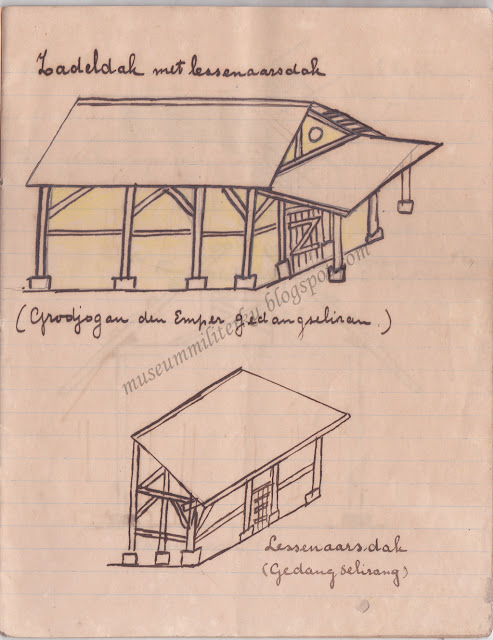 Zadeldak met lessenaarsdak
(Grodjogan den Emper gedangseliran.)
museummiliterku.blogspot.com
Lessenaarsdak
(Gedang Selirang)